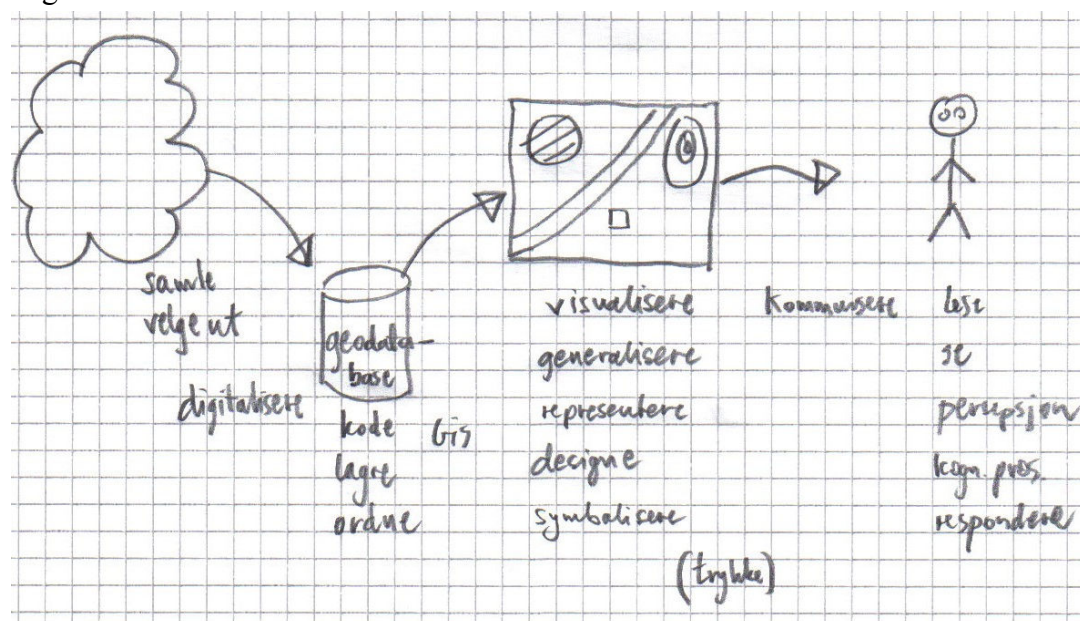 samle
velge ut
digitalisere
geodata-
base
kode
GIS
lagre
ordne
visualisere
generalisere
representere
designe
symbolisere
(trykke)
kommunisere
lese
se
persepsjon
kogn. pros.
respondere